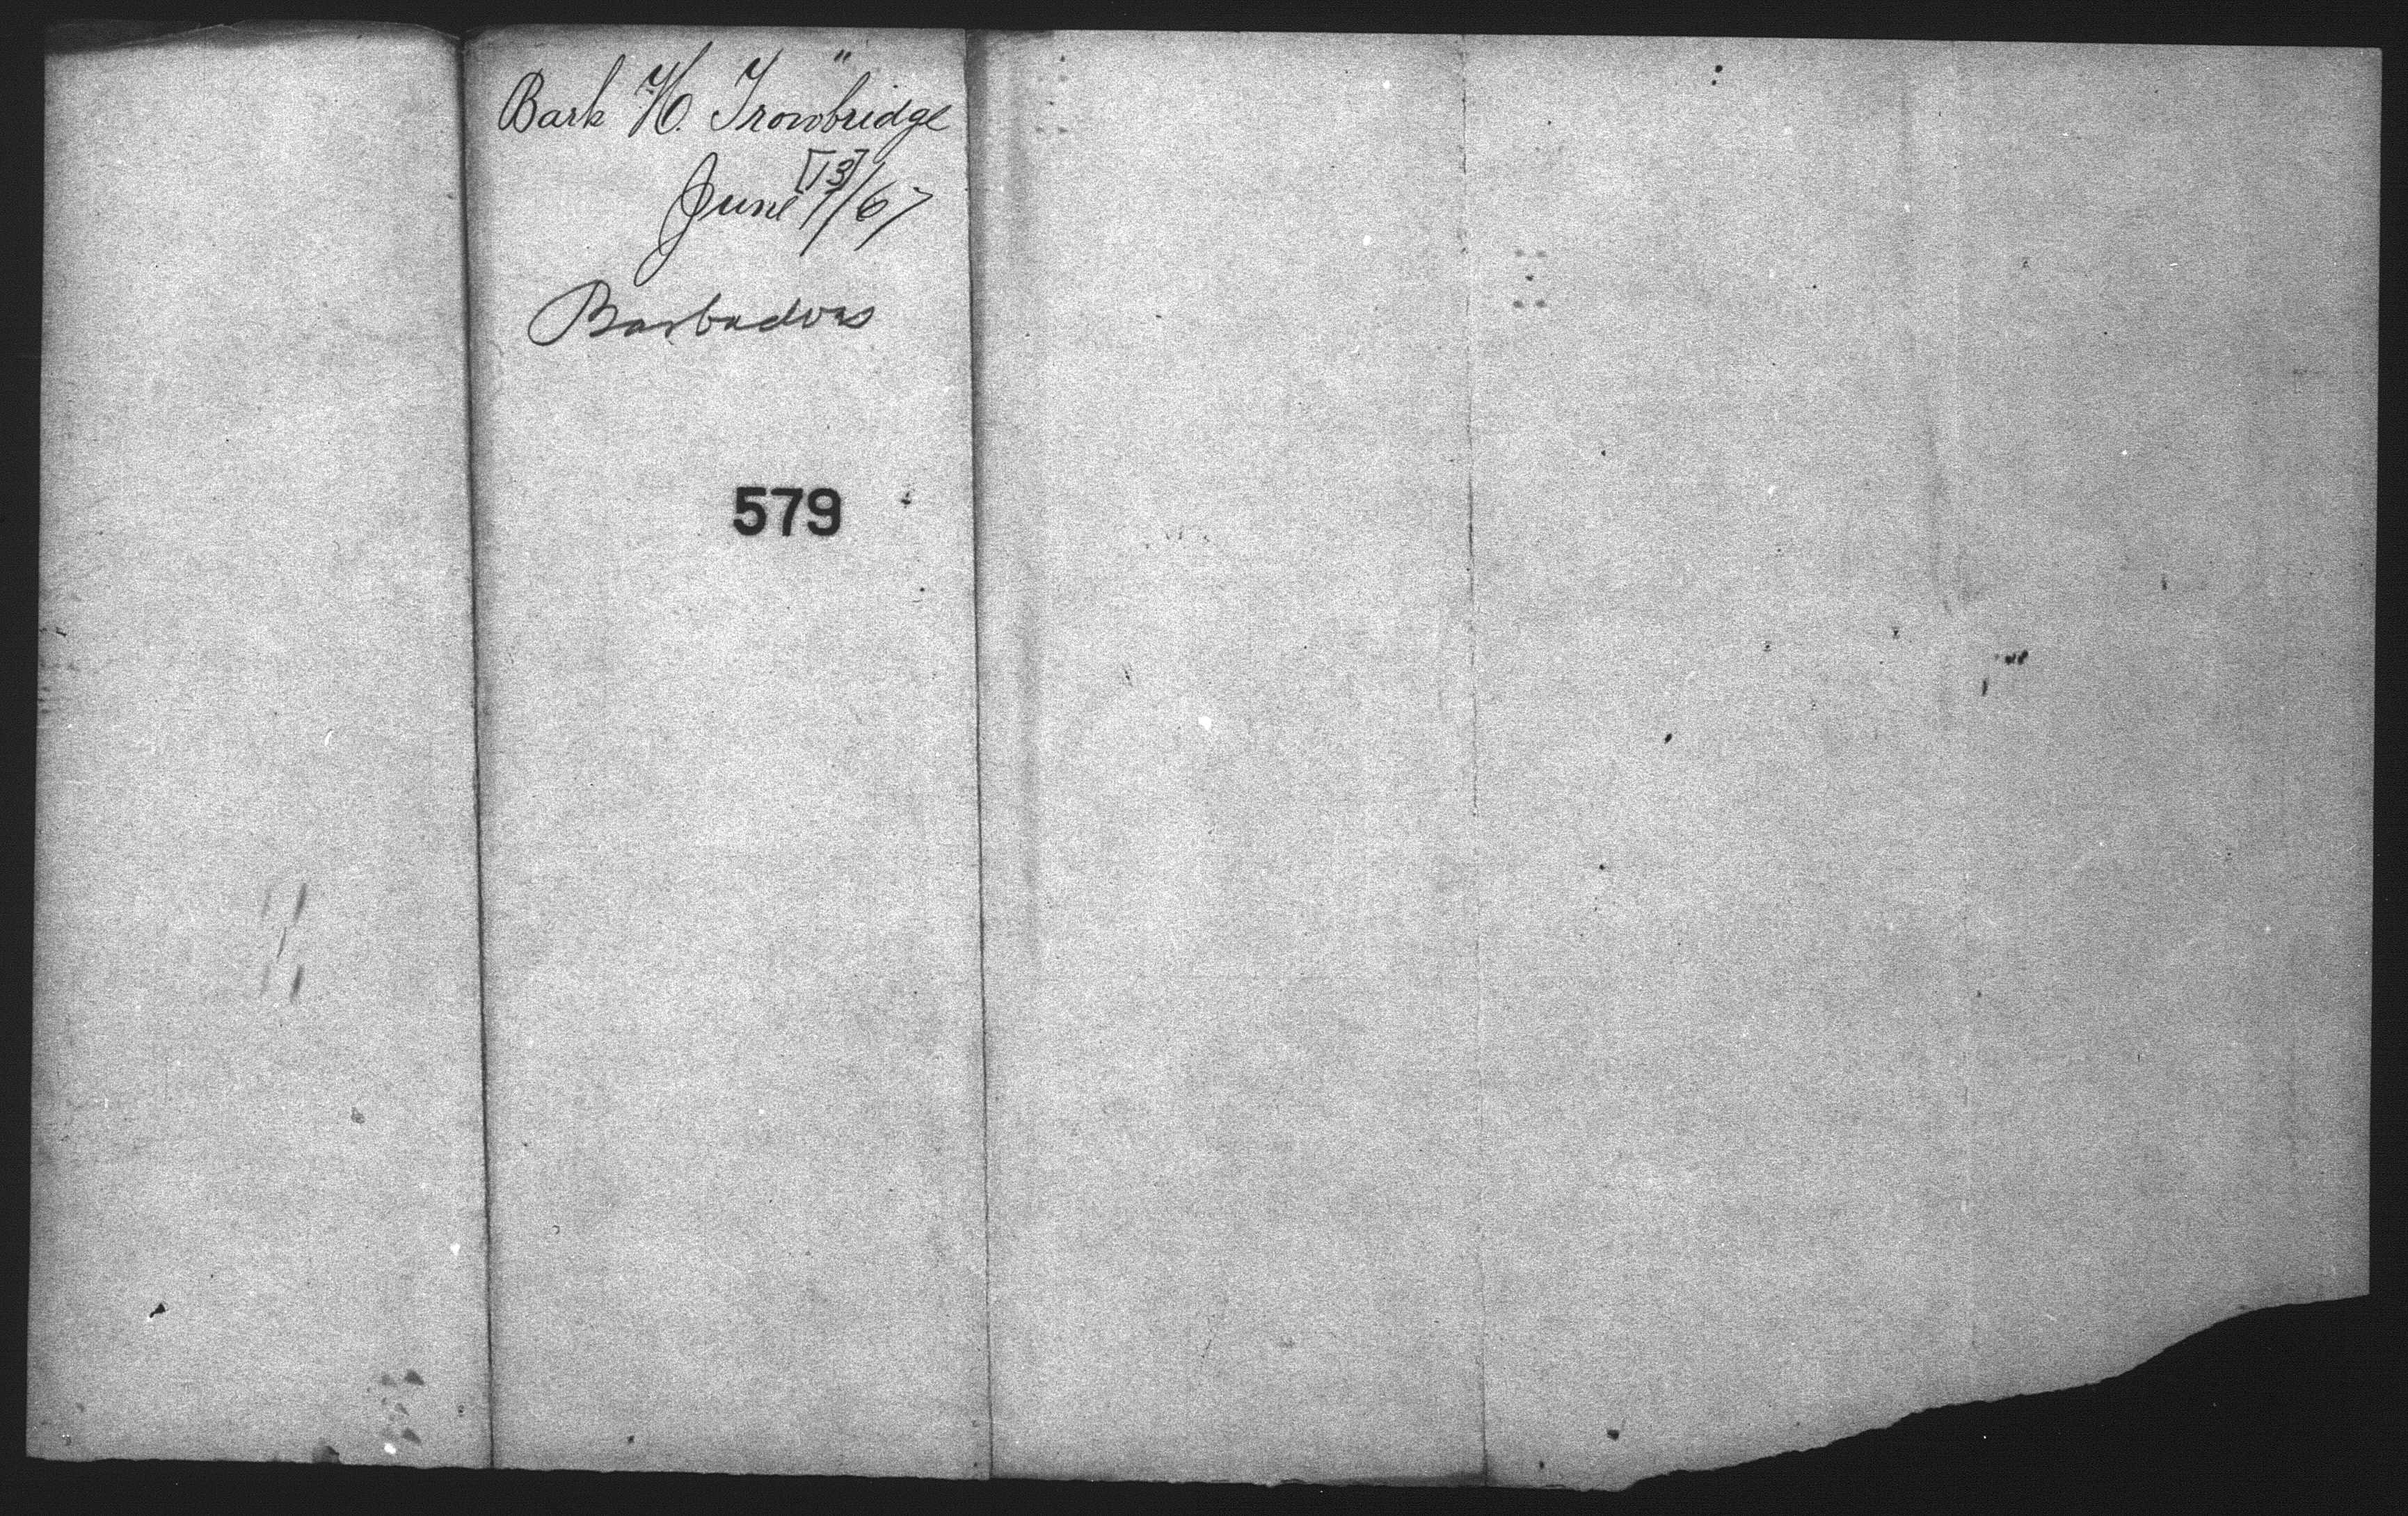 Bark H. Trowbridge "
[13]
June 1/67
Barbadoes
579